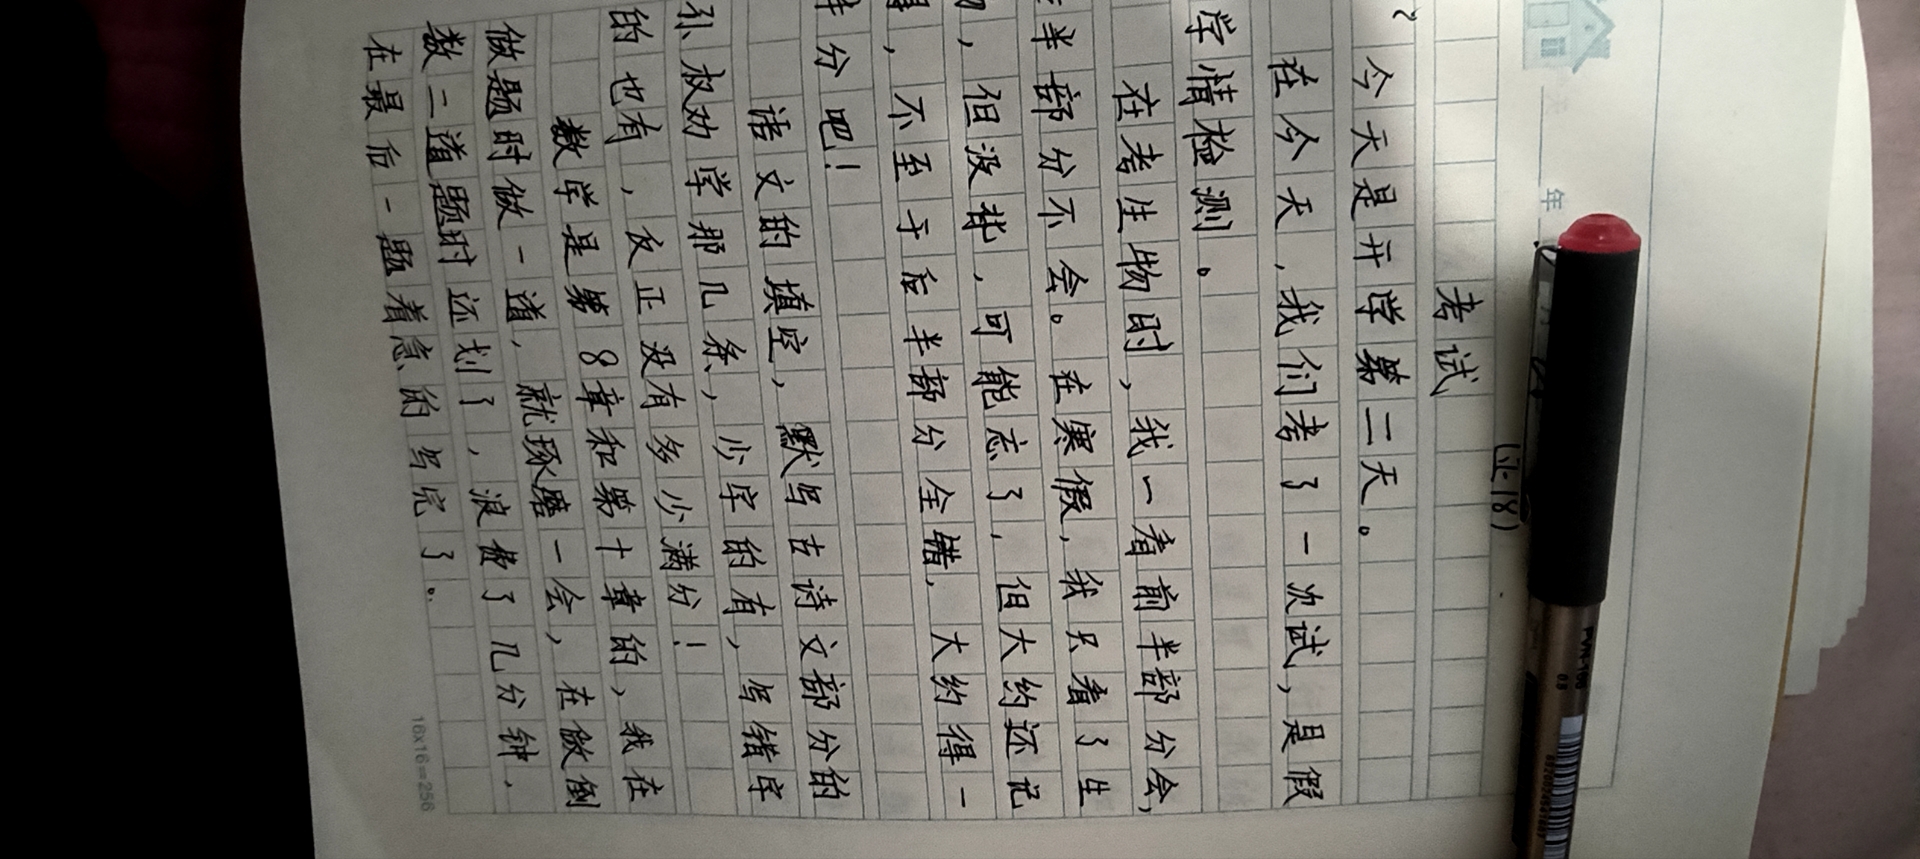 年
考试
今天是开学第二天。
在今天，我们考了一次试，是假
学情检测。
在考生物时，我一看前半部分会，
半部分不会。在寒假，我只看了生
物，但没背，可能忘了，但大约还记
得，不至于后半部分全错，大约得一
半分吧！
语文的填空，默写古诗文部分的
孙权劝学那几条，少字的有，写错字
的也有，反正没有多少满分！
数学是第8章和第十章的，我在
做题时做一道，就琢磨一会，在做倒
数二道题时还划了，浪费了几分钟，
在最后一题着急的写完了。
16x16=256